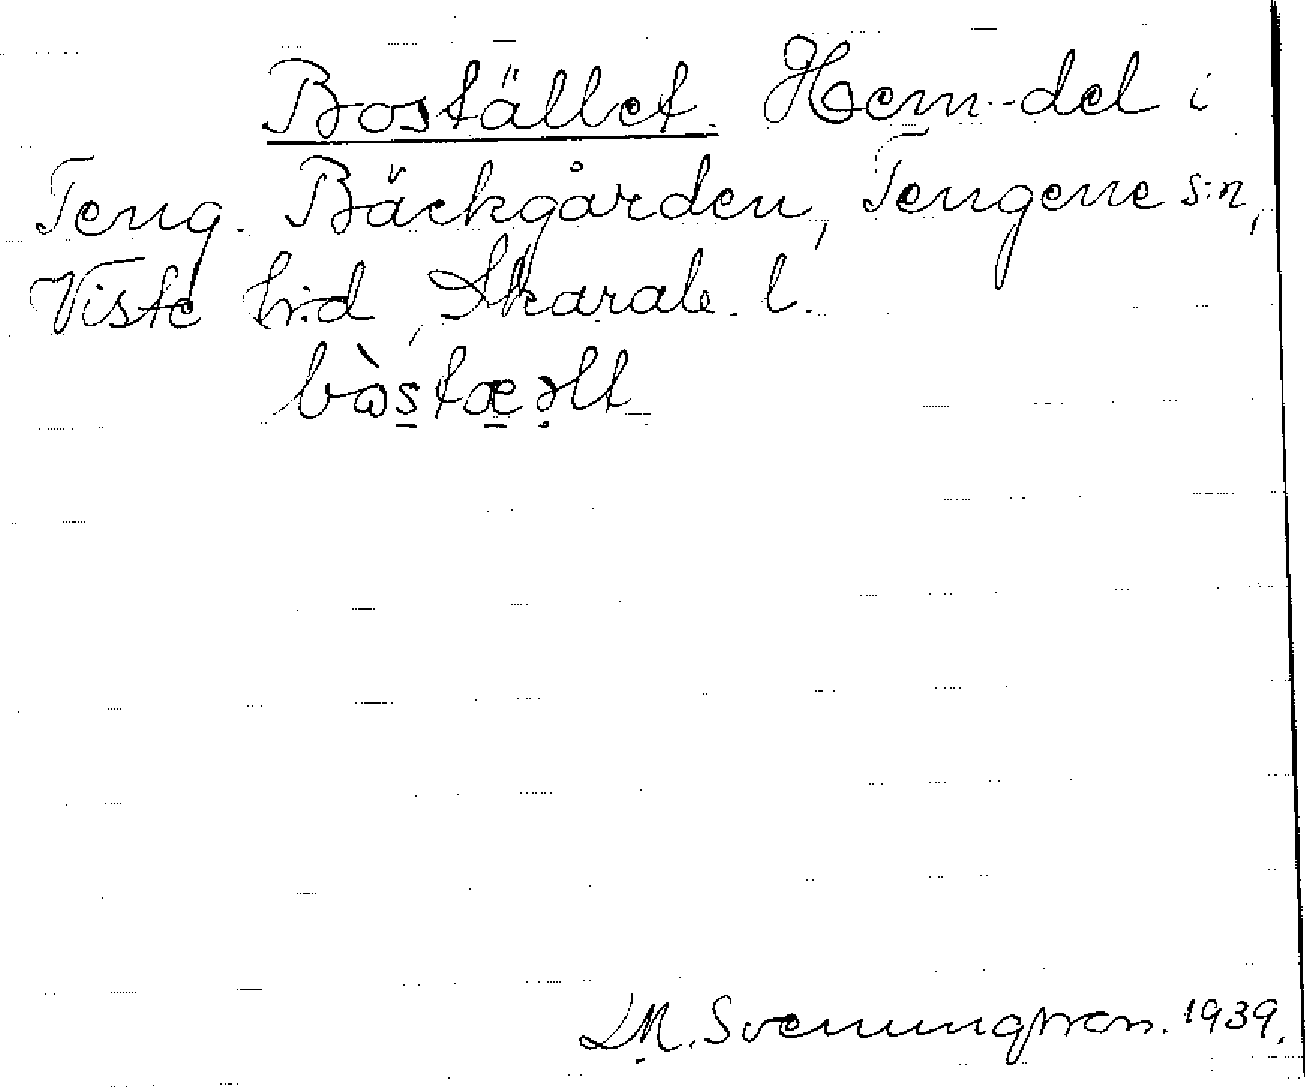 Bostället. Hem.-del i
Teng. Bäckgården, Tengene s:n,
Viste h:d, Skarab. l.
L.M. Svenungsson. 1939.